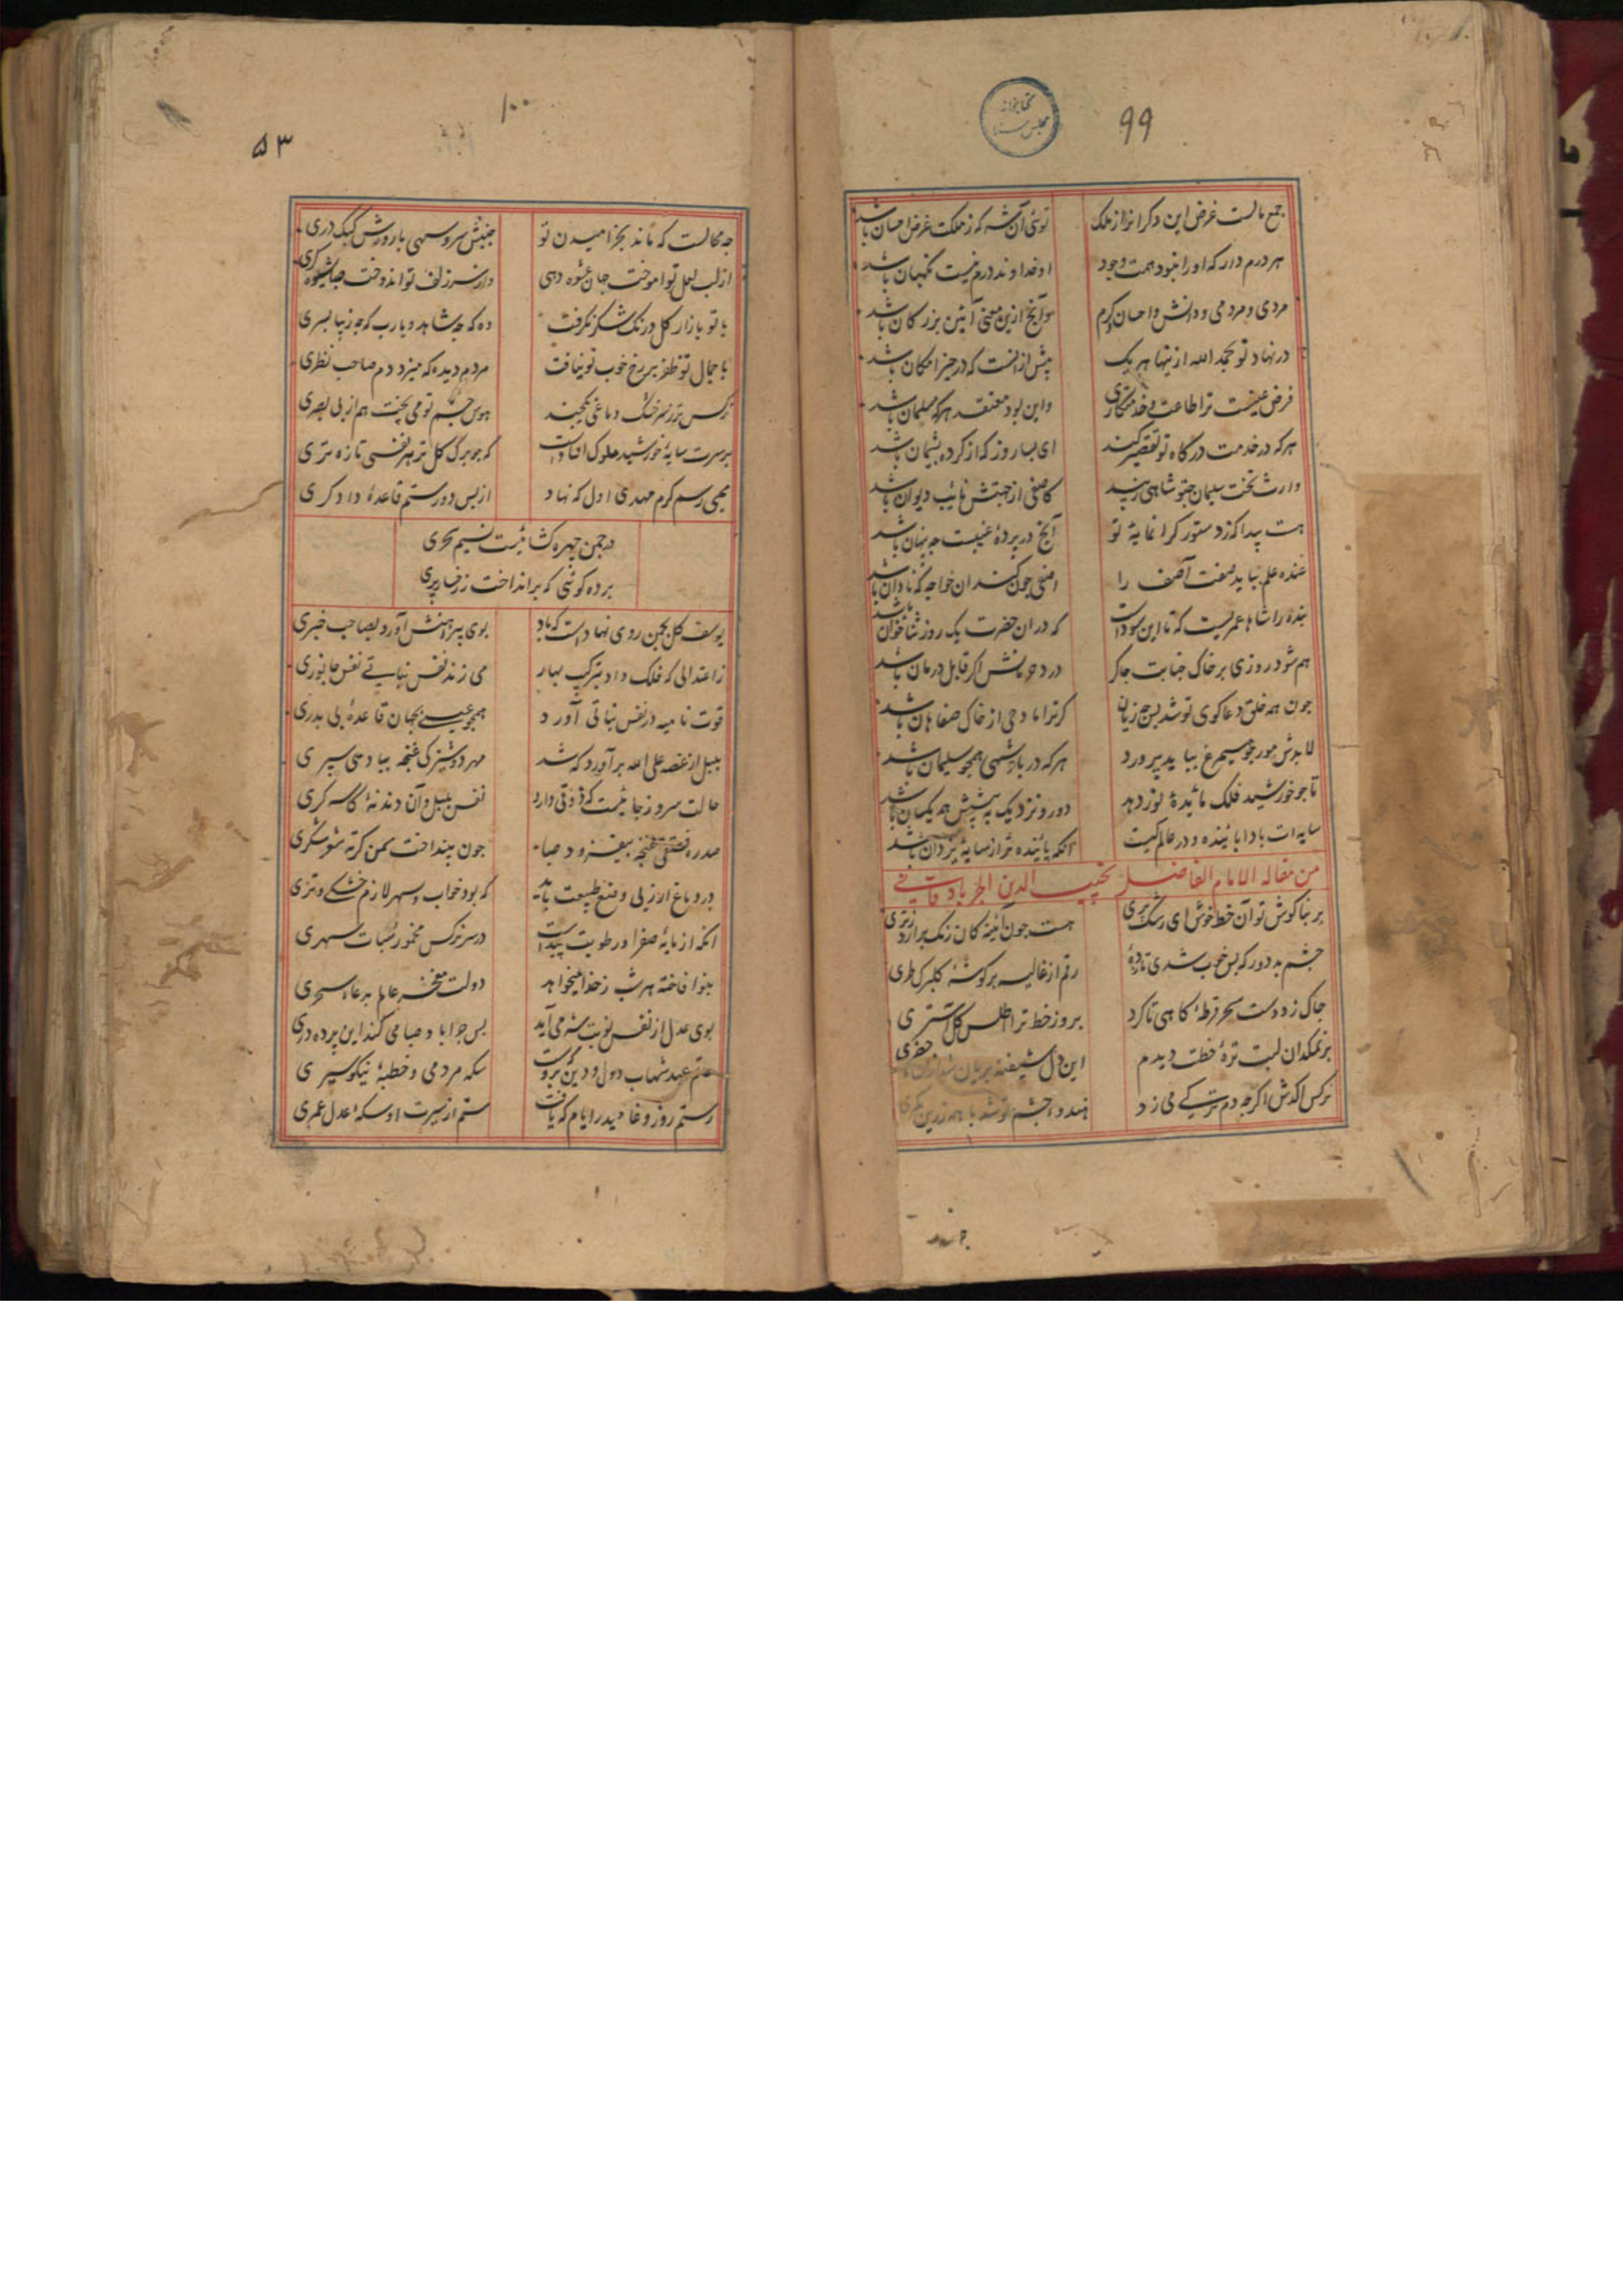 ۹۹
کتابخانه
مجلس سنا
جمع مالست غرض این دکرانرا ز ملک
توئی آن شه که ز ملکت غرض احسان باشد
هر درم دار که او را نبود همت وجود
او خداوند درم نیست نکهبان باشد
مردی و مردمی و دانش و احسان و کرم
وآنج ازین معنی آئین بزرکان باشد
در نهاد تو بحمد الله ازینها هر یک
بیش از آنست که در حیز امکان باشد
فرض عینست ترا طاعت و خدمتکاری
واین بود معتقد هر که مسلمان باشد
هر که در خدمت درکاه تو تقصیر کند
ای بسا روز که از کرده پشیمان باشد
وارث تخت سلیمان چو تو شاهی زیبد
کاصفی از جهتش نایب دیوان باشد
هست پیدا که ز دستور کرانمایهٔ تو
آنج در پردهٔ غیبست چه پنهان باشد
عنده علم بباید صفت آصف را
اصفی چون کند آن خواجه که نادان باشد
بنده را شاها عمریست که تا این سوداست
که در ان حضرت یک روز ثناخوان باشد
هم شود روزی بر خاک جنابت چاکر
درد حرمانش اکر قابل درمان باشد
چون همه خلق دعاکوی تو شد پس چه زیان
کر ترا مادحی از خاک صفاهان باشد
لابدش مور چو سیمرغ بباید پرورد
هر که در پادشهی همچو سلیمان باشد
تا چو خورشید فلک مائدهٔ نور دهد
دور و نزدیک به پیشش همه یکسان باشد
سایه ات باد پاینده و در عالم کیست
آنکه پاینده تر از سایهٔ یزدان باشد
من مقاله الامام الفاضل نجیب الدین الجربادقانی
بر بناکوش تو آن خط خوش ای رشک پری
هست چون آینه کان زنک برارد ز تری
چشم بد دور که بس خوب شدی تا زدهٔ
رقم از غالیه بر کوشهٔ کلبرک طری
چاک زد دست سحر قرطهٔ کاهی تا کرد
بروز خط ترا اطلس کل شستری
بر نمکدان لبت ترهٔ خطت دیدم
این دل شیفته بریان شد از آن خضری
نرکس اکدش اکر چه دم ترکی می زد
هندو چشم تو شد با همه زرین کمری
۱۰۰
۵۳
چه محالست که ماند بخرامیدن تو
جنبش سرو سهی با روش کبک دری
از لب لعل تو اموخت جهان عشوه دهی
وز سر زلف تو اندوخت صبا شیوه کری
با تو بازار کل و رنک شکر نکرفت
وه که چه شاهد و یا رب که چه زیبا پسری
با جمال تو نظر بر رخ خوب تو نیافت
مردم دیده که میزد دم صاحب نظری
هوس چشم تو می پخت هم از بی بصری
بر سرت سایهٔ خورشید ملوک افتادست
که چو برک کل تر هر نفسی تازه تری
محیی رسم کرم مهدی اول که نهاد
از پس دور ستم قاعدهٔ دادکری
در چمن چهره کشائیست نسیم سحری
پرده کوئی که برانداخت ز رخسار پری
یوسف کل بچمن روی نهادست که باد
بوی پیراهنش آورد بصاحب خبری
ز اعتدالی که فلک داد بترکیب بهار
می زند نفس نباتی نفس جانوری
قوت نامیه در نفس نباتی آورد
همچو عیسی بجهان قاعدهٔ بی پدری
بلبل از غصه علی الله برآورد که شد
مهر دوشیزکی غنچه بباد سپری
حالت سرو ز جائیست که ذوقی دارد
نفس بلبل و آن دندنهٔ کاسه کری
صدرهٔ فستقی غنچه بیفزود صبا
چون بینداخت سمن کرتهٔ شوشتری
در دماغ ارز پی وضع طبیعت باید
که بود خواب و سهر لازم خشکی و تری
انکه از مایهٔ صفرا و رطوبت پیداست
در سر نرکس مخمور سبات سهری
بینوا فاخته هر شب ز خدا میخواهد
دولت مفخر عالم به دعاء سحری
بوی عدل از نفس نوبت شه می آید
پس چرا باد صبا می کند این پرده دری
حاتم عهد شهاب دول و دین کزوست
سکه مردمی و خطبهٔ نیکو سیری
رستم روز وغا حیدر ایام که یافت
ستم از سیرت او سکهٔ عدل عمری